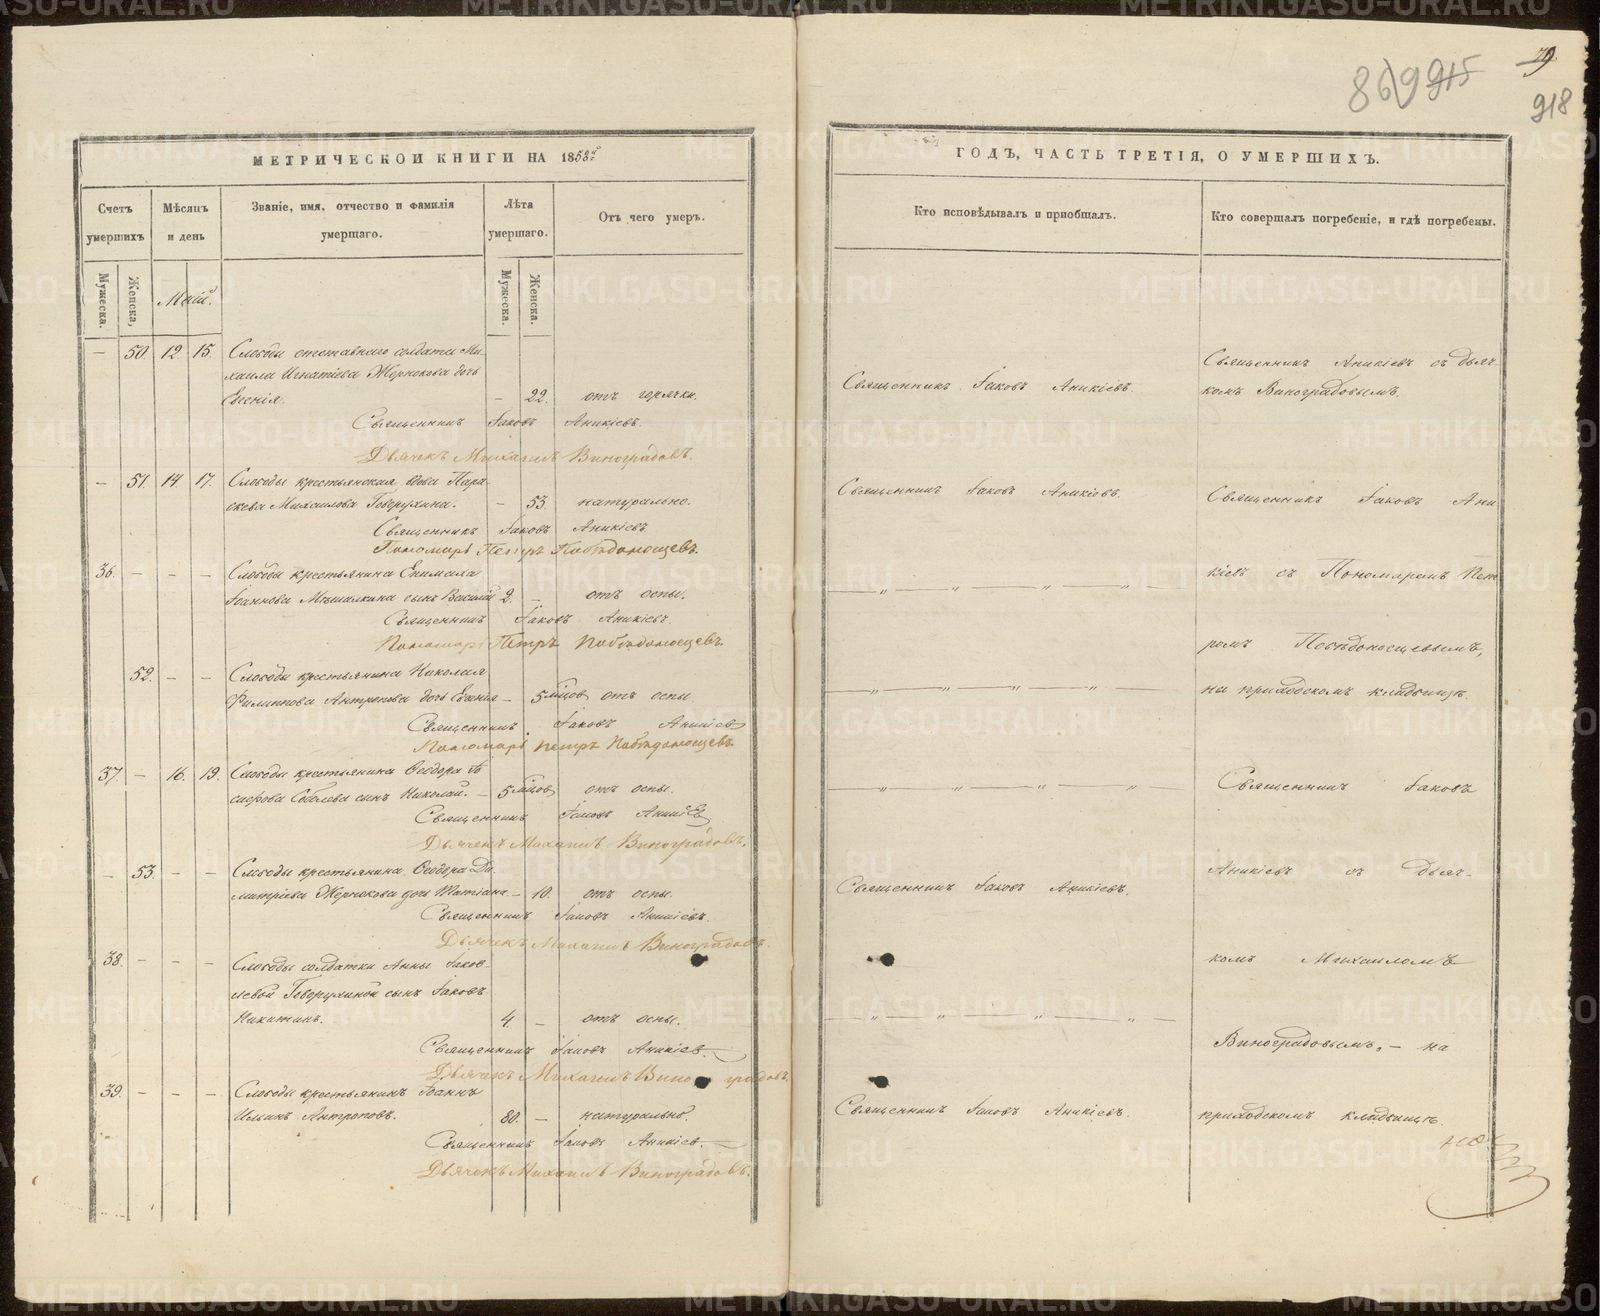 79
869 915
918
МЕТРИЧЕСКОЙ КНИГИ НА 1858й
Счетъ умершихъ
Мѣсяцъ и день
Званіе, имя, отчество и фамилія умершаго.
Лѣта умершаго.
Отъ чего умеръ.
Мужеска.
Женска,
Маій.
Мужеска.
Женска.
— 50. 12. 15. Слободы отставнаго солдата Ми-
хаила Игнатіева Жернокова дочь
Евгенія. — 22. отъ горячки.
Священникъ Іаковъ Аникіевъ.
Дьячекъ Михаилъ Виноградовъ.
— 51. 14. 17. Слободы крестьянская вдова Пара-
скева Михаилова Говорухина. — 53. натурально.
Священникъ Іаковъ Аникіевъ.
Пономарь Петръ Побѣдоносцевъ.
36. — — — Слободы крестьянина
Іоаннова сынъ Василій 2. — отъ оспы.
Священникъ Іаковъ Аникіевъ.
Пономарь Петръ Побѣдоносцевъ.
52. — — Слободы крестьянина Николая
Филиппова Антропова дочь — 5 мѣсцов отъ оспы
Священникъ Іаковъ Аникіев
Пономарь Петръ Побѣдоносцевъ.
37. — 16. 19. Слободы крестьянина Ѳеодора
Соболева сынъ Николай. — 5 мѣсцов отъ оспы.
Священникъ Іаковъ Аникіев
Дьячекъ Михаилъ Виноградовъ.
— 53. — — Слободы крестьянина Ѳеодора Ди-
митріева Жернокова дочь Татіана — 10. отъ оспы.
Священникъ Іаковъ Аникіевъ.
Дьячекъ Михаилъ Виноградовъ.
38. — — — Слободы солдатки Анны Іаков-
левой Говорухиной сынъ Іаковъ
Никитинъ. 4. — отъ оспы.
Священникъ Іаковъ Аникіев.
Дьячекъ Михаилъ Виноградовъ.
39. — — — Слободы крестьянинъ Іоаннъ
Антроповъ. 80. — натурально.
Священникъ Іаковъ Аникіев.
Дьячекъ Михаилъ Виноградовъ.
ГОДЪ, ЧАСТЬ ТРЕТІЯ, О УМЕРШИХЪ.
Кто исповѣдывалъ и пріобщалъ.
Кто совершалъ погребеніе, и гдѣ погребены.
Священникъ Іаковъ Аникіевъ.
Священникъ Аникіевъ съ дьяч-
комъ Виноградовымъ.
Священникъ Іаковъ Аникіевъ.
Священникъ Іаковъ Ани
кіевъ съ Пономаремъ Пет
ромъ Побѣдоносцевымъ,
на приходскомъ кладбищѣ.
Священникъ Іаковъ
Священникъ Іаковъ Аникіевъ.
Аникіевъ съ дьяч-
комъ Михаиломъ
Виноградовымъ, — на
Священникъ Іаковъ Аникіевъ.
приходскомъ кладбищѣ.
METRIKI.GASO-URAL.RU